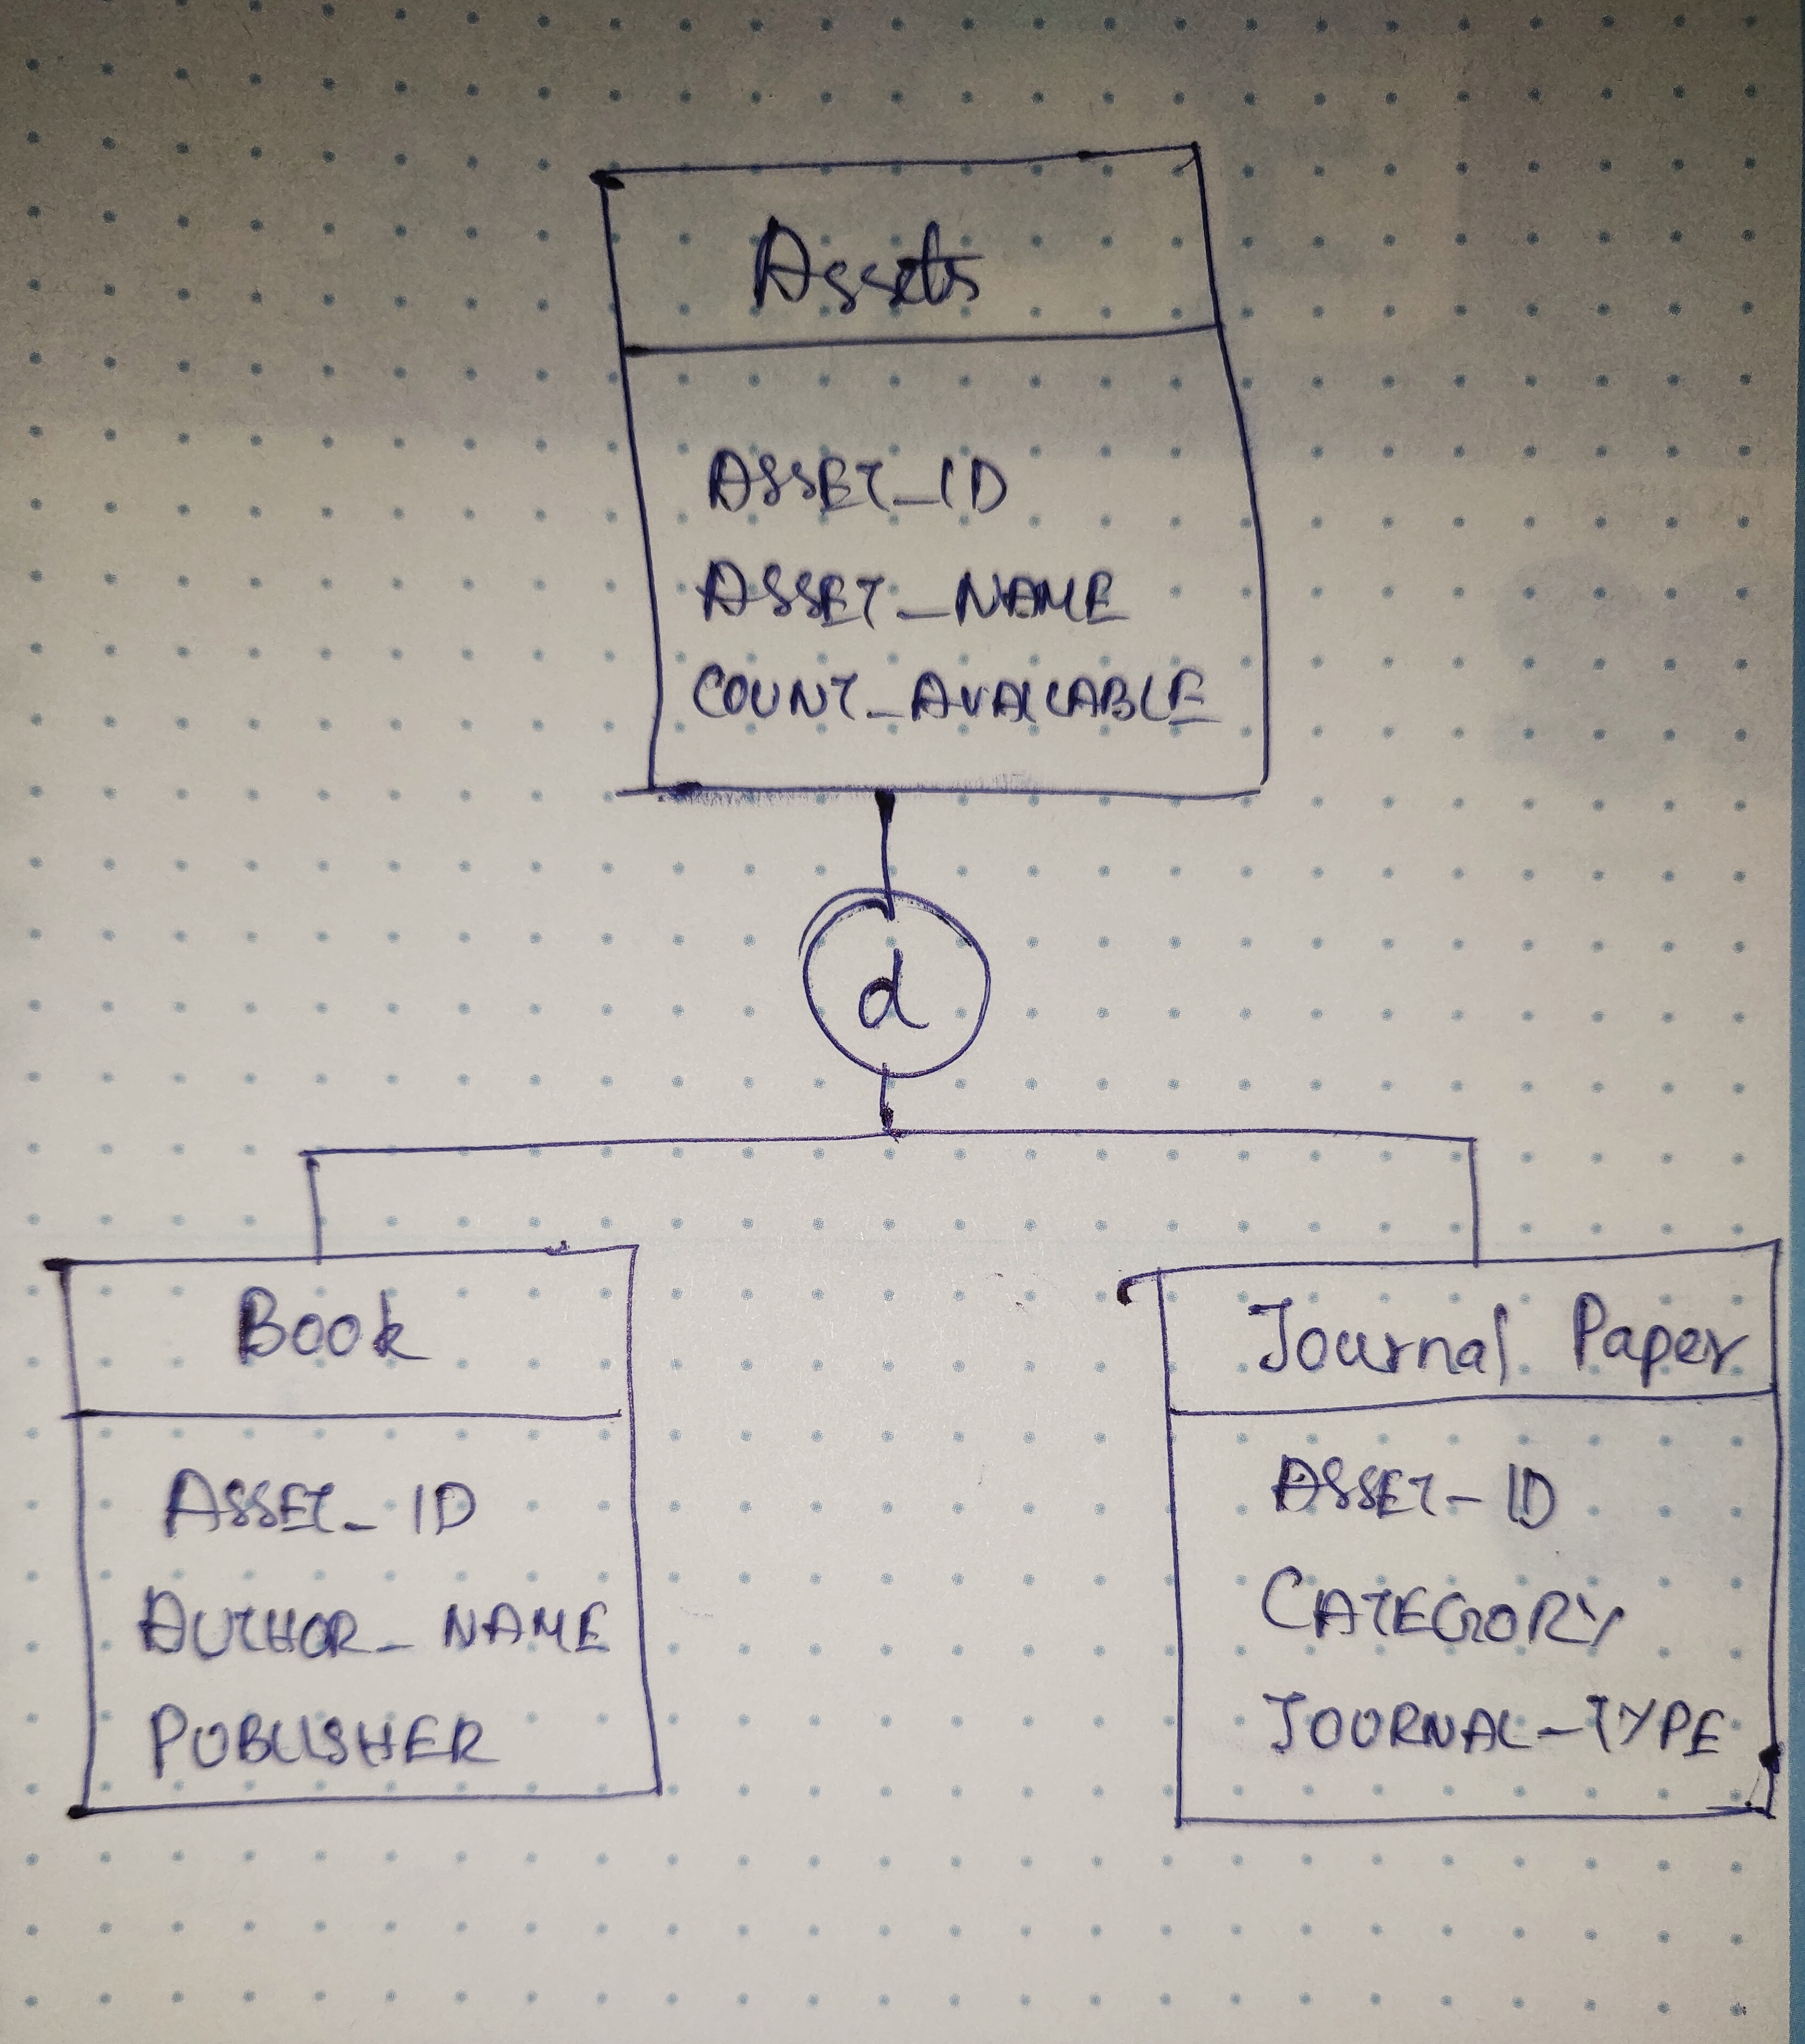 Assets
ASSET_ID
ASSET_NAME
COUNT_AVAILABLE
d
Book
ASSET_ID
AUTHOR_NAME
PUBLISHER
Journal Paper
ASSET_ID
CATEGORY
JOURNAL_TYPE